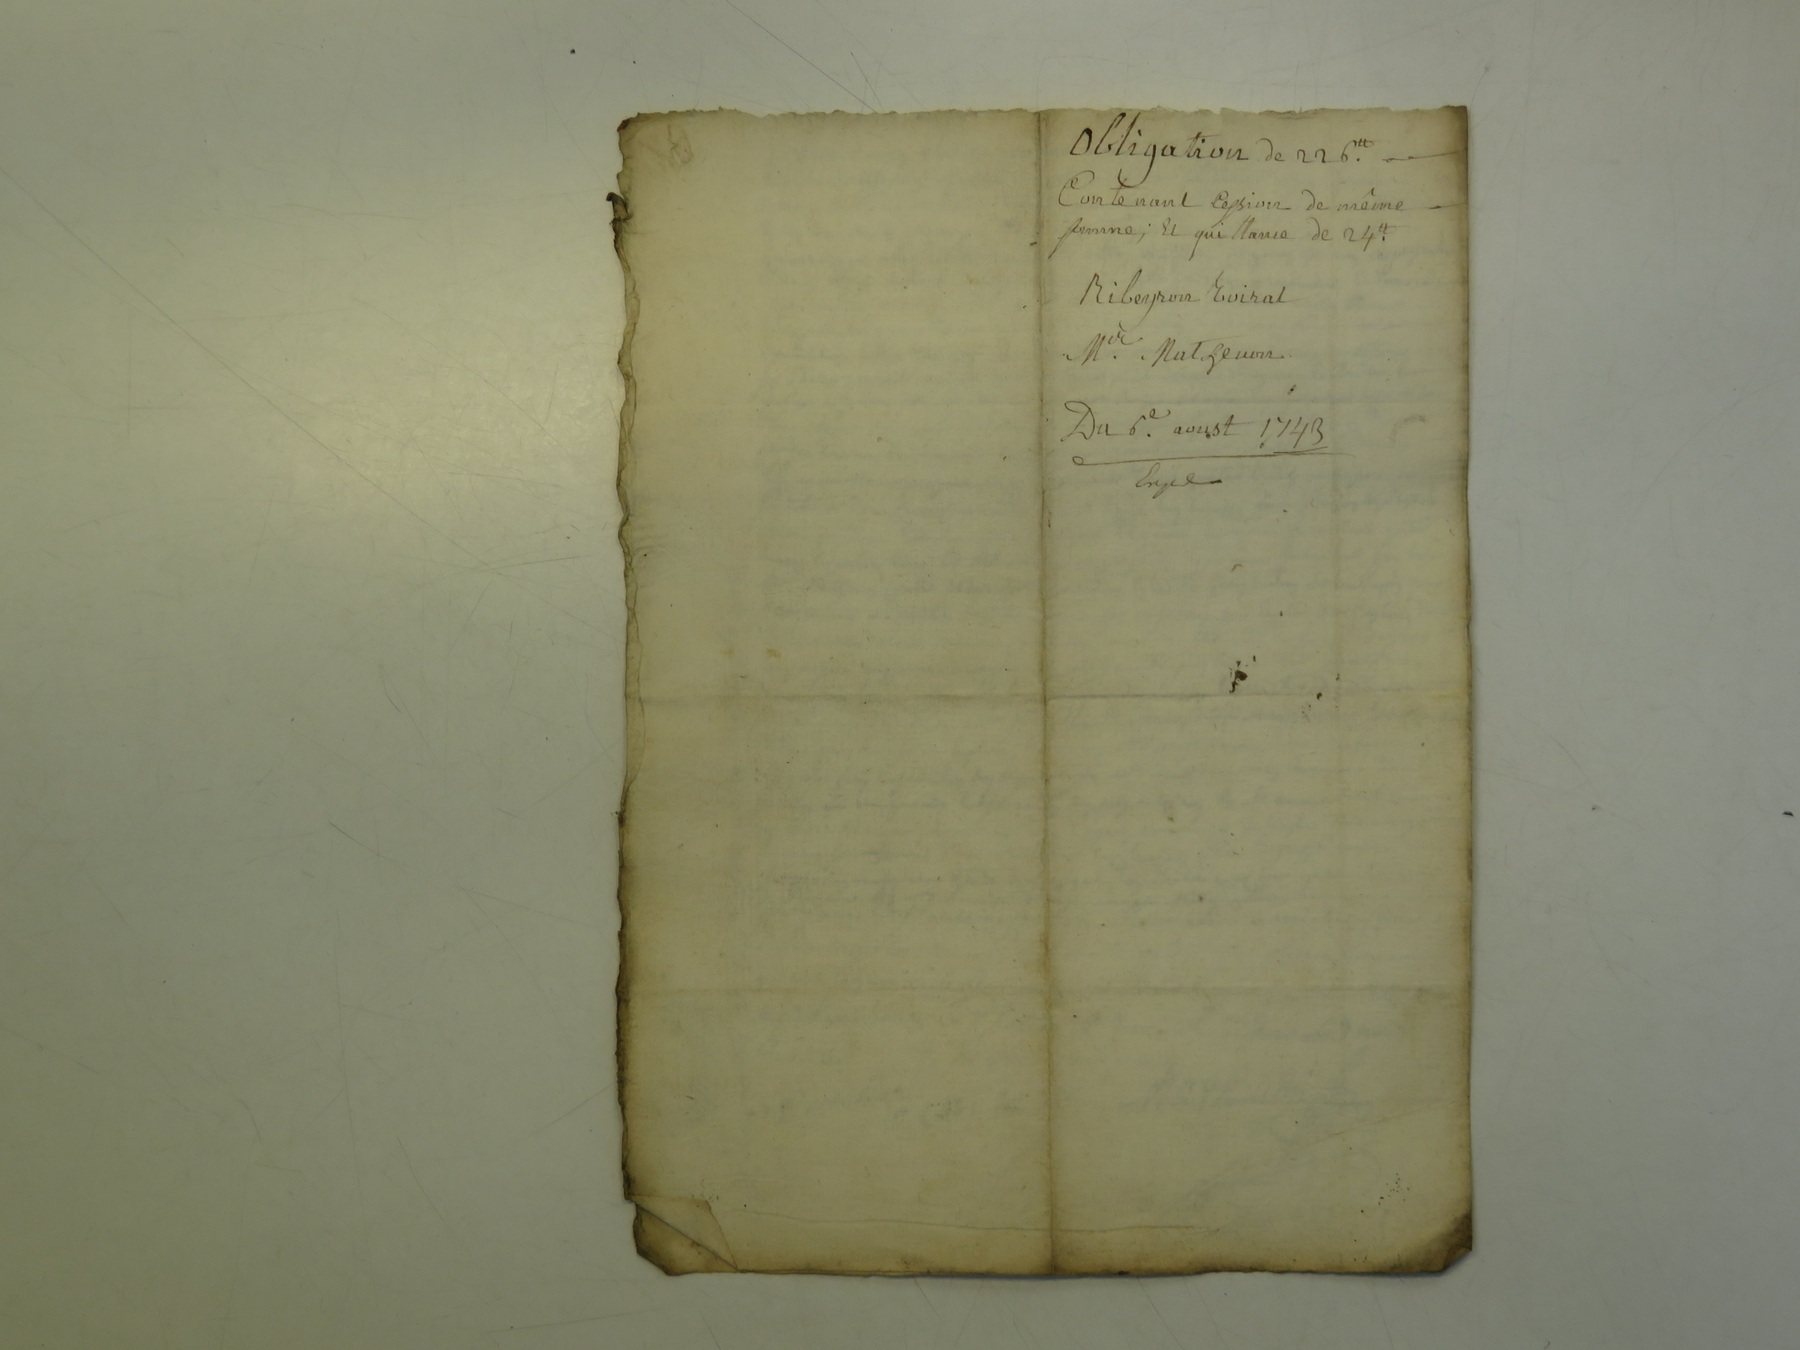 Obligation de 226tt
Contenant cession de même
somme; Et quittance de 24tt
Ribeyron Evirat
Mr. Matzenon
Du 6e. aoust 1743
Expe